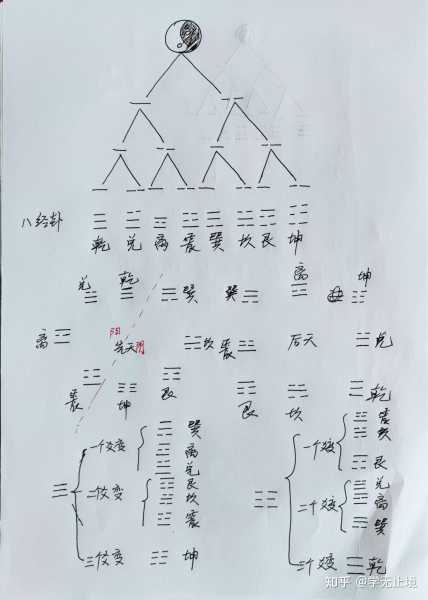 八经卦
乾 兑 离 震 巽 坎 艮 坤
兑 乾 巽 巽 离 坤
阳
离 先天 阴 坎 震 后天 兑
震 坤 艮 艮 坎 乾
一个爻变 巽 离 兑
二爻变 艮 坎 震
三爻变 坤
一个爻变 震 坎 艮
二个爻变 兑 离 巽
三个爻变 乾
知乎 @学无止境